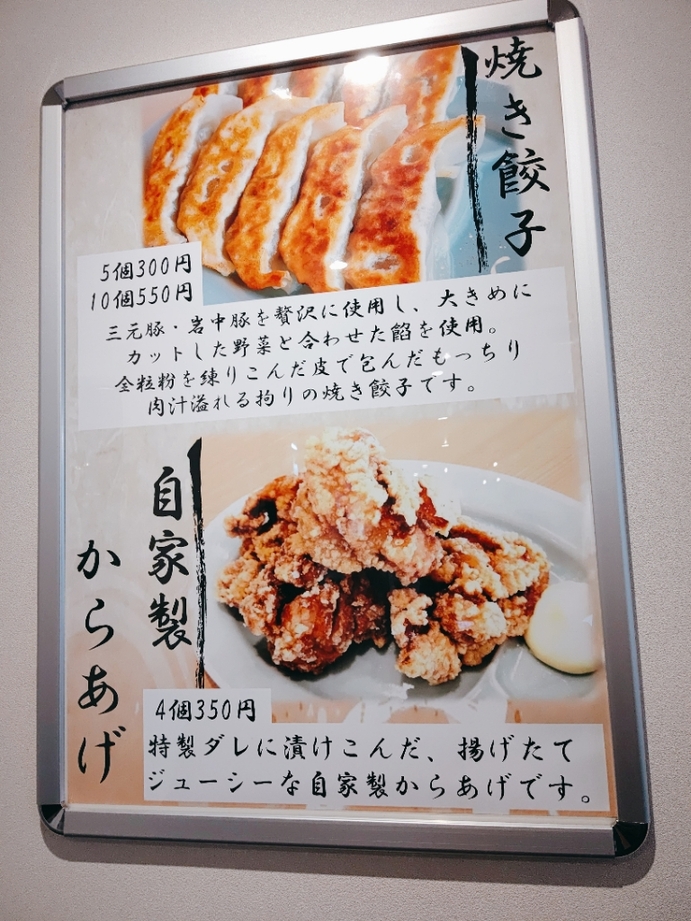 焼き餃子
5個300円
10個550円
三元豚・岩中豚を贅沢に使用し、大きめに
カットした野菜と合わせた餡を使用。
全粒粉を練りこんだ皮で包んだもっちり
肉汁溢れる拘りの焼き餃子です。
自家製
からあげ
4個350円
特製ダレに漬けこんだ、揚げたて
ジューシーな自家製からあげです。